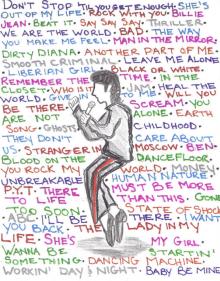 DON'T STOP 'TIL YOU GET ENOUGH. SHE'S
OUT OF MY LIFE. ROCK WITH YOU. BILLIE
JEAN. BEAT IT. SAY SAY SAY. THRILLER.
WE ARE THE WORLD. BAD. THE WAY
YOU MAKE ME FEEL. MAN IN THE MIRROR.
DIRTY DIANA. ANOTHER PART OF ME.
SMOOTH CRIMINAL. LEAVE ME ALONE
LIBERIAN GIRL. BLACK OR WHITE.
REMEMBER THE TIME. IN THE
CLOSET. WHO IS IT. JAM. HEAL THE
WORLD. GIVE IN TO ME. WILL YOU
BE THERE. SCREAM. YOU
ARE NOT ALONE. EARTH
SONG. GHOSTS. CHILDHOOD.
THEY DON'T CARE ABOUT
US. STRANGER IN MOSCOW. BEN.
BLOOD ON THE DANCEFLOOR.
YOU ROCK MY WORLD.
UNBREAKABLE. HUMAN NATURE
P.Y.T. THERE MUST BE MORE
TO LIFE THAN THIS. GONE
TOO SOON. STATE OF SHOCK
ABC. I'LL BE THERE. I WANT
YOU BACK. THE LADY IN MY
LIFE. SHE'S MY GIRL.
WANNA BE STARTIN'
SOMETHING. DANCING MACHINE.
WORKIN' DAY & NIGHT. BABY BE MINE